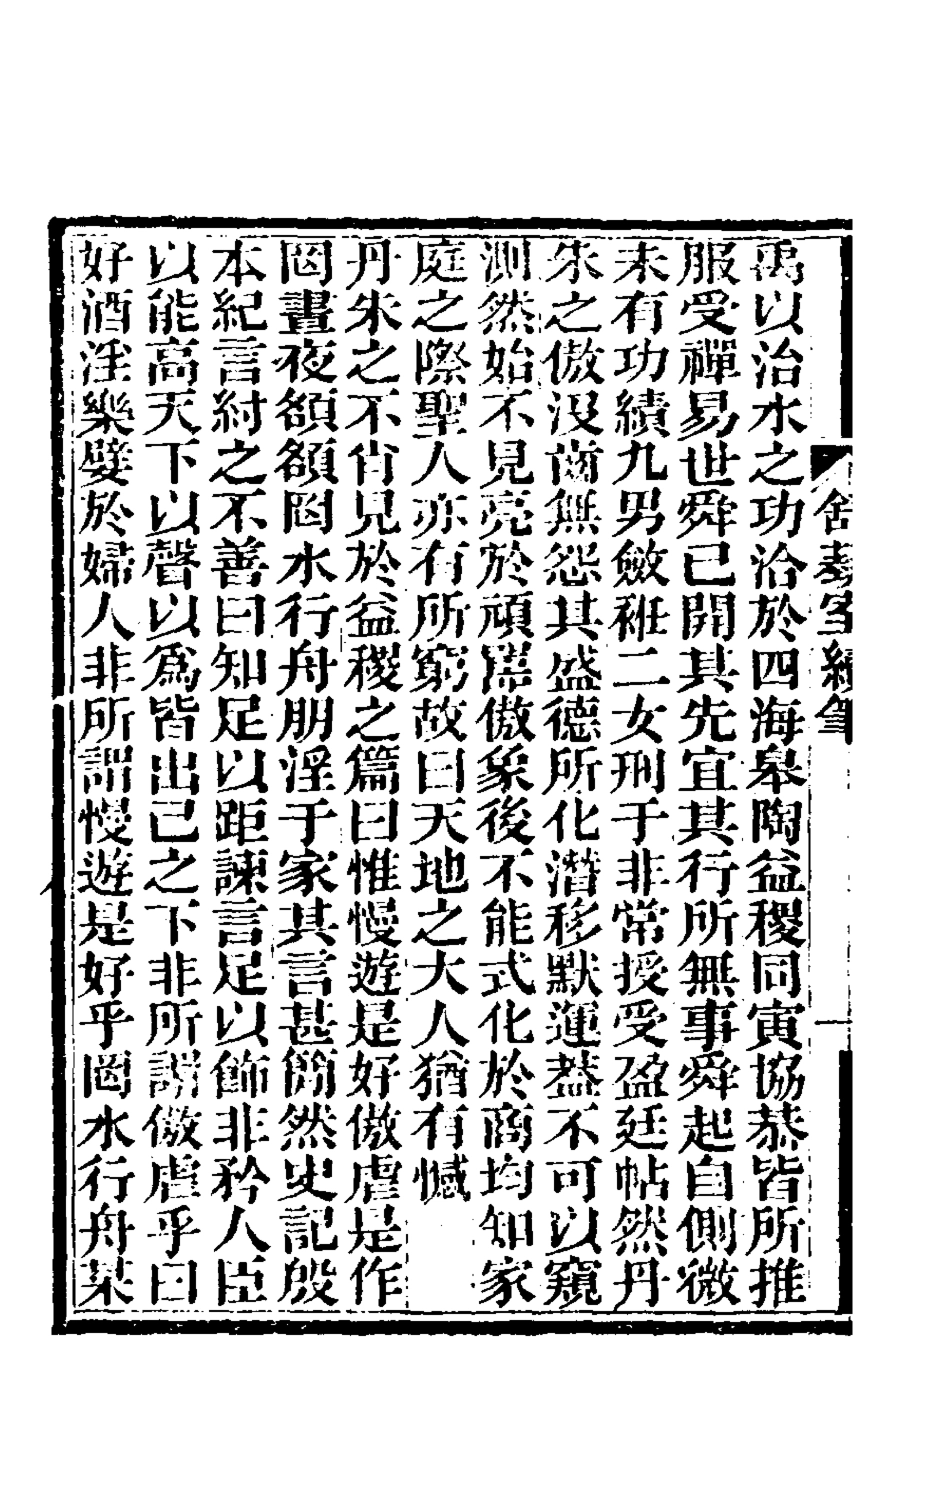 禹以治水之功洽於四海皋陶益稷同寅協恭皆所推
服受禪易世舜已開其先宜其行所無事舜起自側微
未有功績九男斂袵二女刑于非常授受盈廷帖然丹
朱之傲沒齒無怨其盛德所化潛移默運葢不可以窺
測然始不見亮於頑嚚傲象後不能式化於商均知家
庭之際聖人亦有所窮故曰天地之大人猶有憾
丹朱之不肖見於益稷之篇曰惟慢遊是好傲虐是作
罔晝夜頟頟罔水行舟朋淫于家其言甚簡然史記殷
本紀言紂之不善曰知足以距諫言足以飾非矜人臣
以能高天下以聲以為皆出己之下非所謂傲虐乎曰
好酒淫樂嬖於婦人非所謂慢遊是好乎罔水行舟某